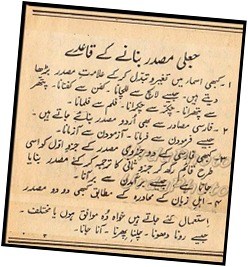 جعلی مصدر بنانے کے قاعدے
۱ - کبھی اسما میں تغیر و تبدل کر کے علامتِ مصدر بڑھا
دیتے ہیں۔ جیسے لالچ سے للچانا۔ کفن سے کفنانا۔ پتھر
سے پتھرانا۔ چکر سے چکرانا۔ فلم سے فلمانا۔
۲ - فارسی مصادر سے بھی اُردو مصدر بنائے جاتے ہیں۔
جیسے فرمودن سے فرمانا۔ آزمودن سے آزمانا۔
کبھی فارسی کے دو جزوی مصدر کے جزوِ اول کو اسی
طرح قائم رکھ کر جزوِ ثانی کا ترجمہ کر کے مصدر بنایا
جاتا ہے۔ جیسے برآمدن سے برآنا۔
۴ - اہلِ زبان کے محاورہ کے مطابق کبھی دو دو مصدر
استعمال کئے جاتے ہیں خواہ وُہ موافق ہوں یا مختلف۔
جیسے رونا دھونا۔ چلنا پھرنا۔ آنا جانا۔